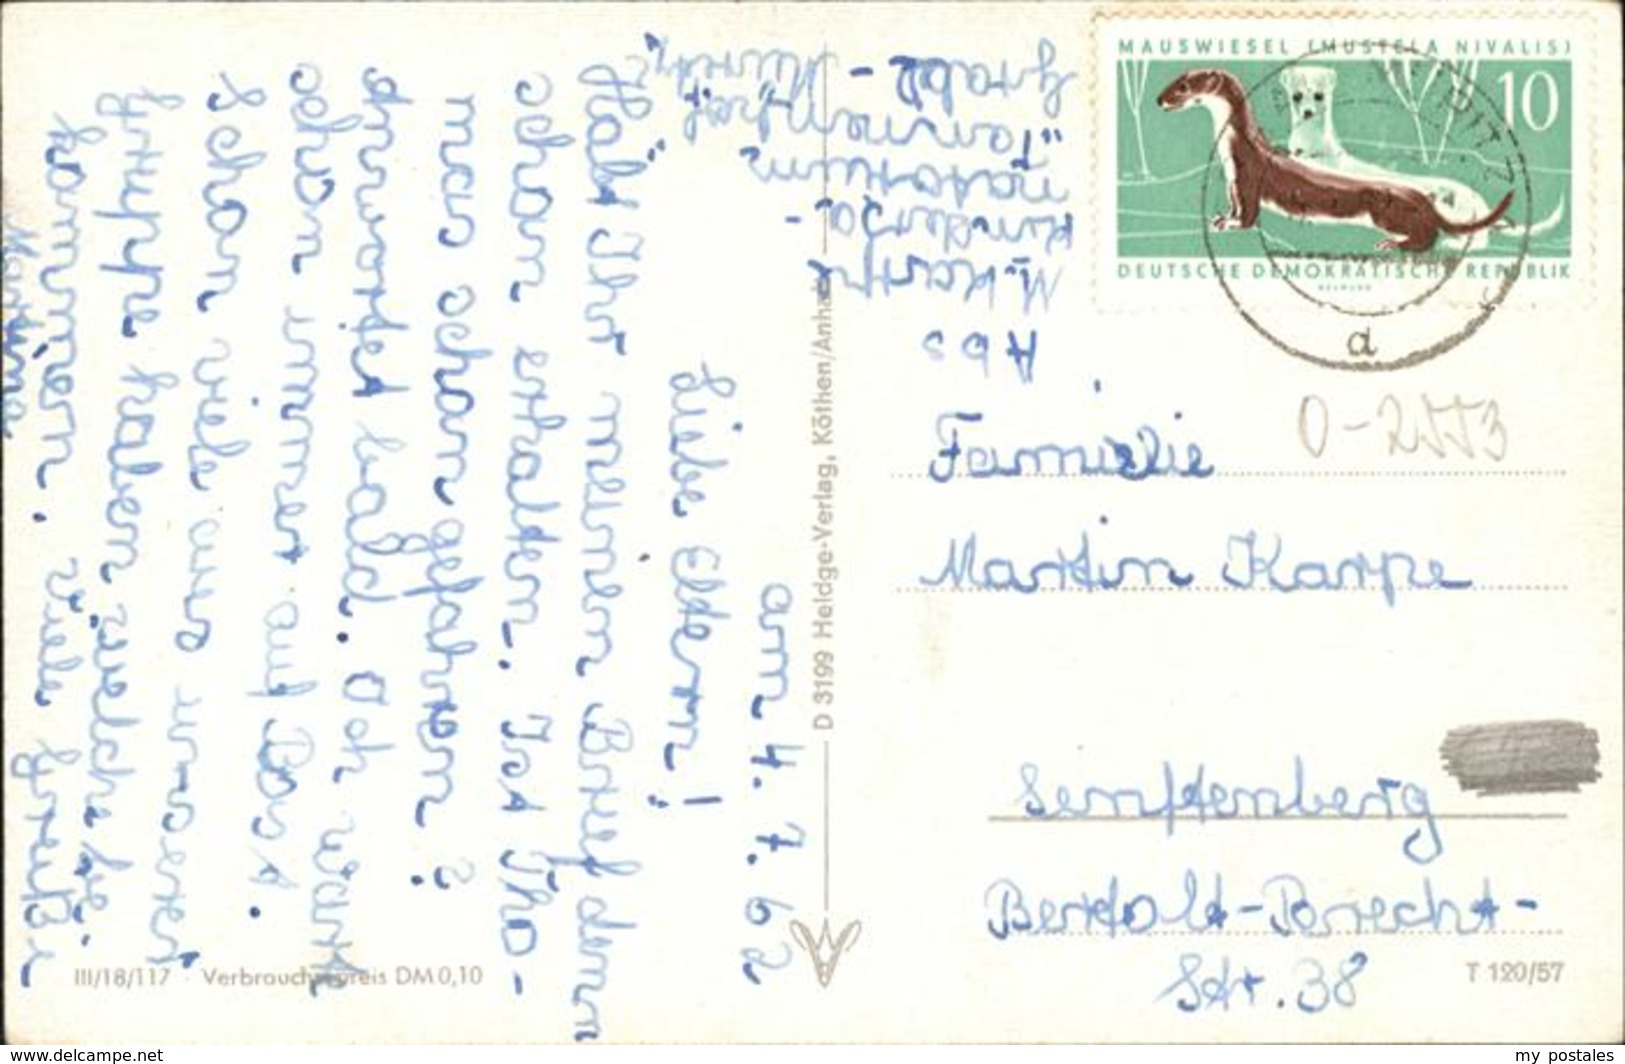 MAUSWIESEL (MUSTELA NIVALIS)
10
DEUTSCHE DEMOKRATISCHE REPUBLIK
d
0-2553
Abs
M. Karpe
Kindersa-
natorium
"Tannenhof"
Grabl-
Müritz
Familie
Martin Karpe
Senftenberg
Bertolt-Brecht-
Str. 38
T 120/57
D 3199 Heldge-Verlag, Köthen/Anhalt
III/18/117 · Verbraucherpreis DM 0,10
am 4. 7. 62
Liebe Eltern!
Habt Ihr meinen Brief denn
schon erhalten. Ist Tho-
mas schon gefahren?
Antwortet bald. Och warte
schon immer auf Post.
Schon viele aus unserer
Gruppe haben welche be-
kommen. Viele Grüße
Martina
www.delcampe.net
my_postales